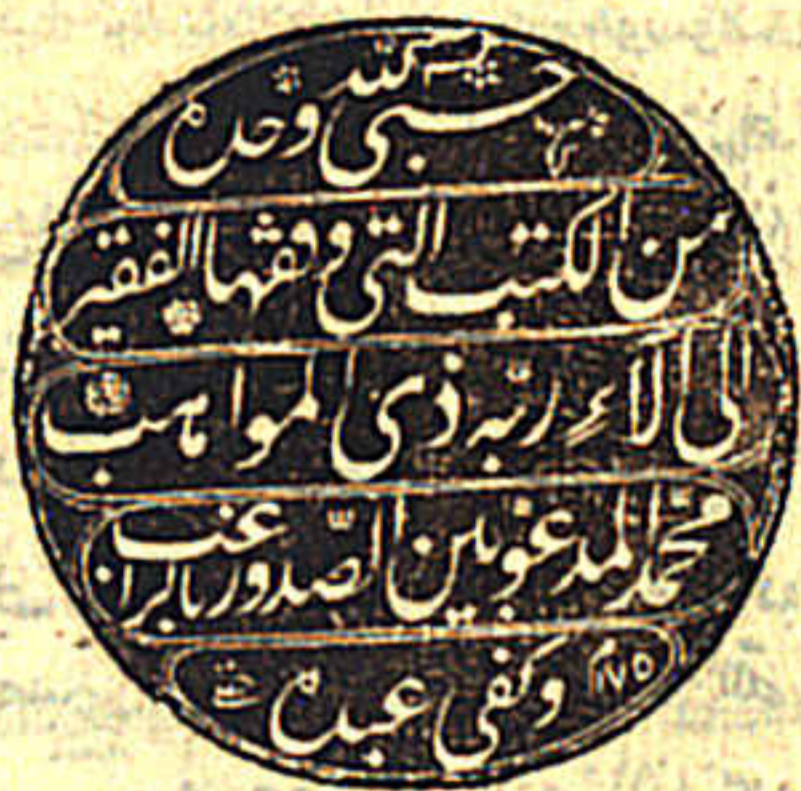 حسبى الله وحده
من الكتب التى وقفها الفقير
الى آلاء ربّه ذى المواهب
محمّد المدعو بين الصّدور بالراغب
١١٧٥ وكفى عبده